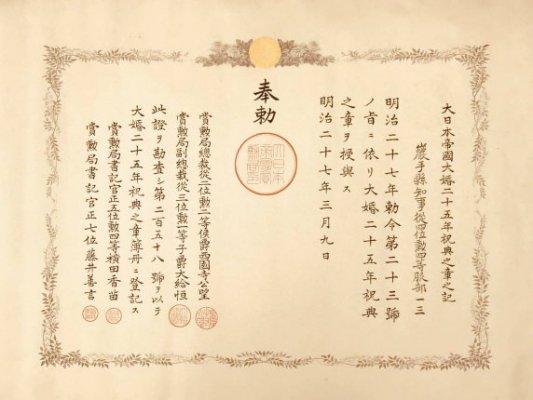 大日本帝國大婚二十五年祝典之章之記
巖手縣知事從四位勳四等服部一三
明治二十七年勅令第二十三號
ノ旨ニ依リ大婚二十五年祝典
之章ヲ授與ス
明治二十七年三月九日
奉勅
賞勲局總裁從二位勳一等侯爵西園寺公望
賞勲局副總裁從三位勳一等子爵大給恒
此證ヲ勘査シ第二百五十八號ヲ以テ
大婚二十五年祝典之章簿冊ニ登記ス
賞勲局書記官正五位勳四等横田香苗
賞勲局書記官正七位藤井善言